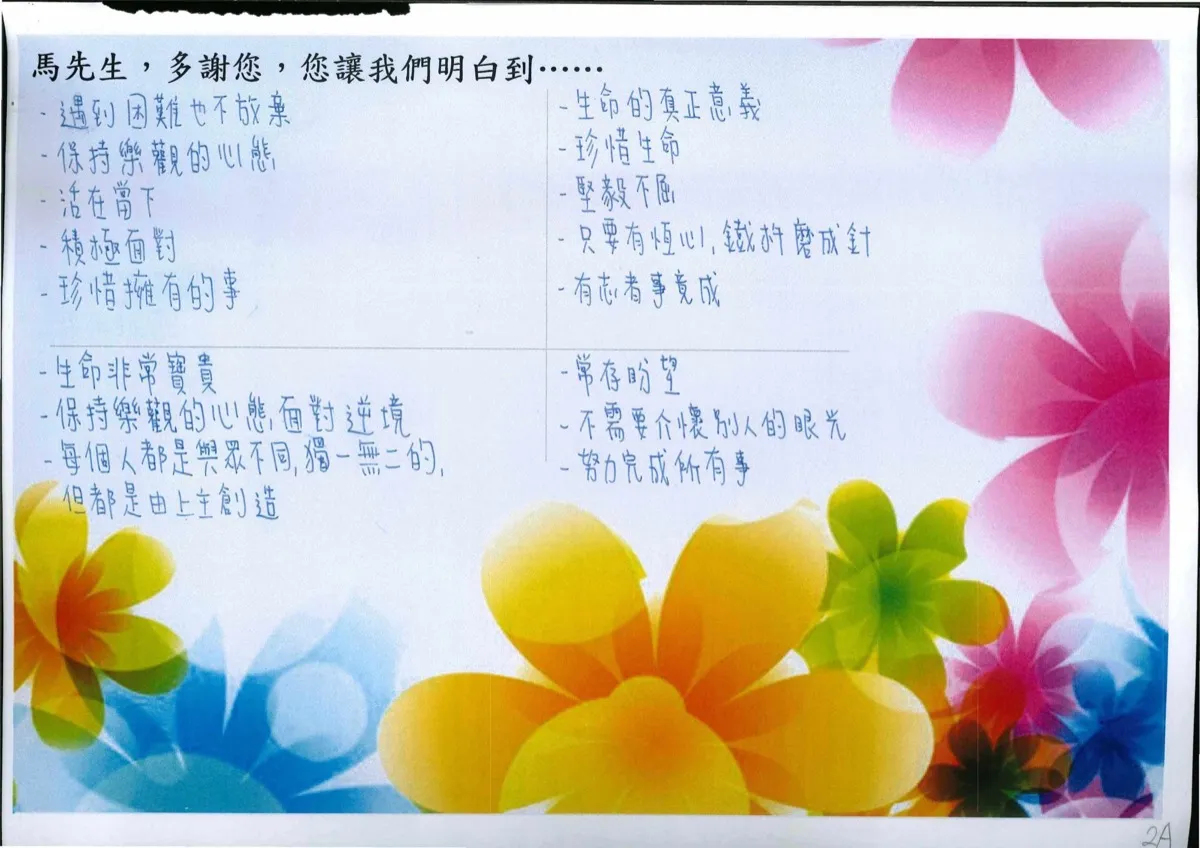 馬先生，多謝您，您讓我們明白到⋯⋯
- 遇到困難也不放棄
- 保持樂觀的心態
- 活在當下
- 積極面對
- 珍惜擁有的事
- 生命的真正意義
- 珍惜生命
- 堅毅不屈
- 只要有恆心, 鐵杵磨成針
- 有志者事竟成
- 生命非常寶貴
- 保持樂觀的心態面對逆境
- 每個人都是與眾不同, 獨一無二的,
但都是由上主創造
- 常存盼望
- 不需要介懷別人的眼光
- 努力完成所有事
2A